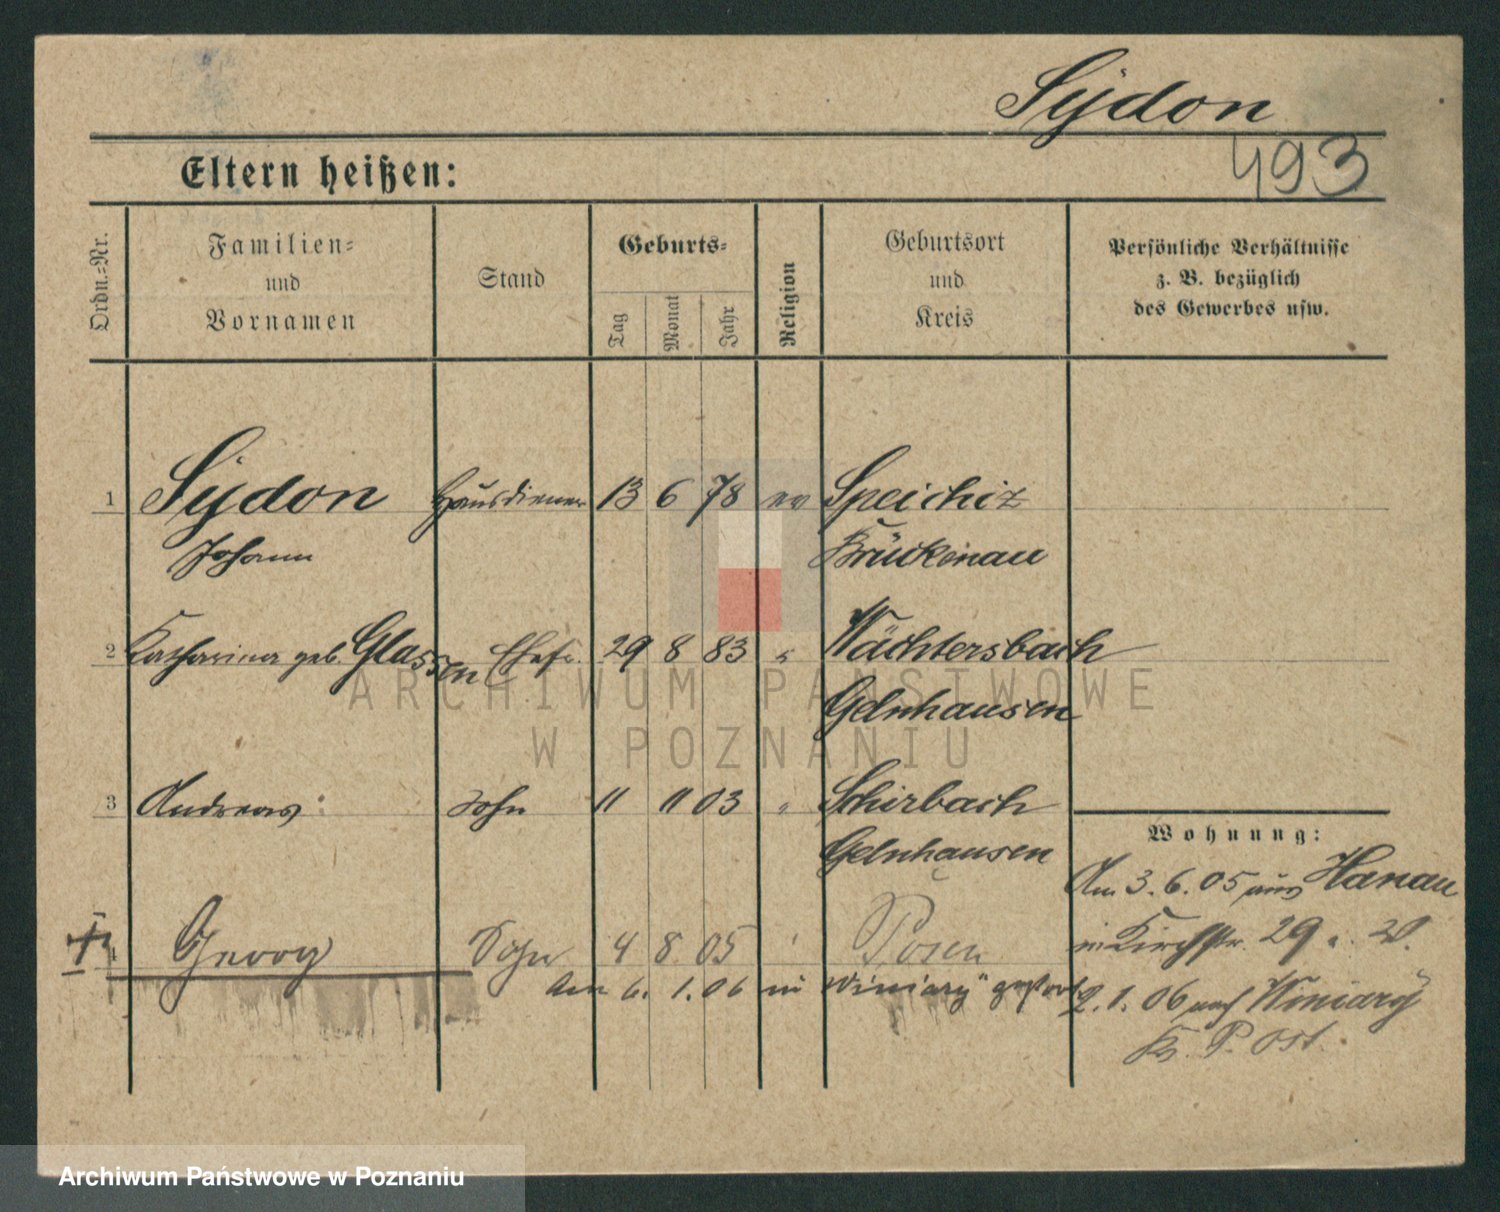 Sydon
493
Eltern heißen:
Ordn.-Nr.
Familien-
und
Vornamen
Stand
Geburts-
Tag
Monat
Jahr
Religion
Geburtsort
und
Kreis
Persönliche Verhältnisse
z. B. bezüglich
des Gewerbes usw.
1 Sydon Hausdiener 13 6 78 ev Speichiz
Johann Brückenau
2 Katharina geb. Glassen Ehefr. 29 8 83 " Wächtersbach
Gelnhausen
3 Andreas Sohn 11 11 03 " Schirbach
Gelnhausen
Wohnung:
Am 3. 6. 05 aus Hanau
in Kirchstr. 29
4 Georg Sohn 4 8 05 " Posen
Am 6. 1. 06 in "Winiary" gestorb.
2. 1. 06 nach Winiary
Kr. P. Ost.
ARCHIWUM PAŃSTWOWE
W POZNANIU
Archiwum Państwowe w Poznaniu